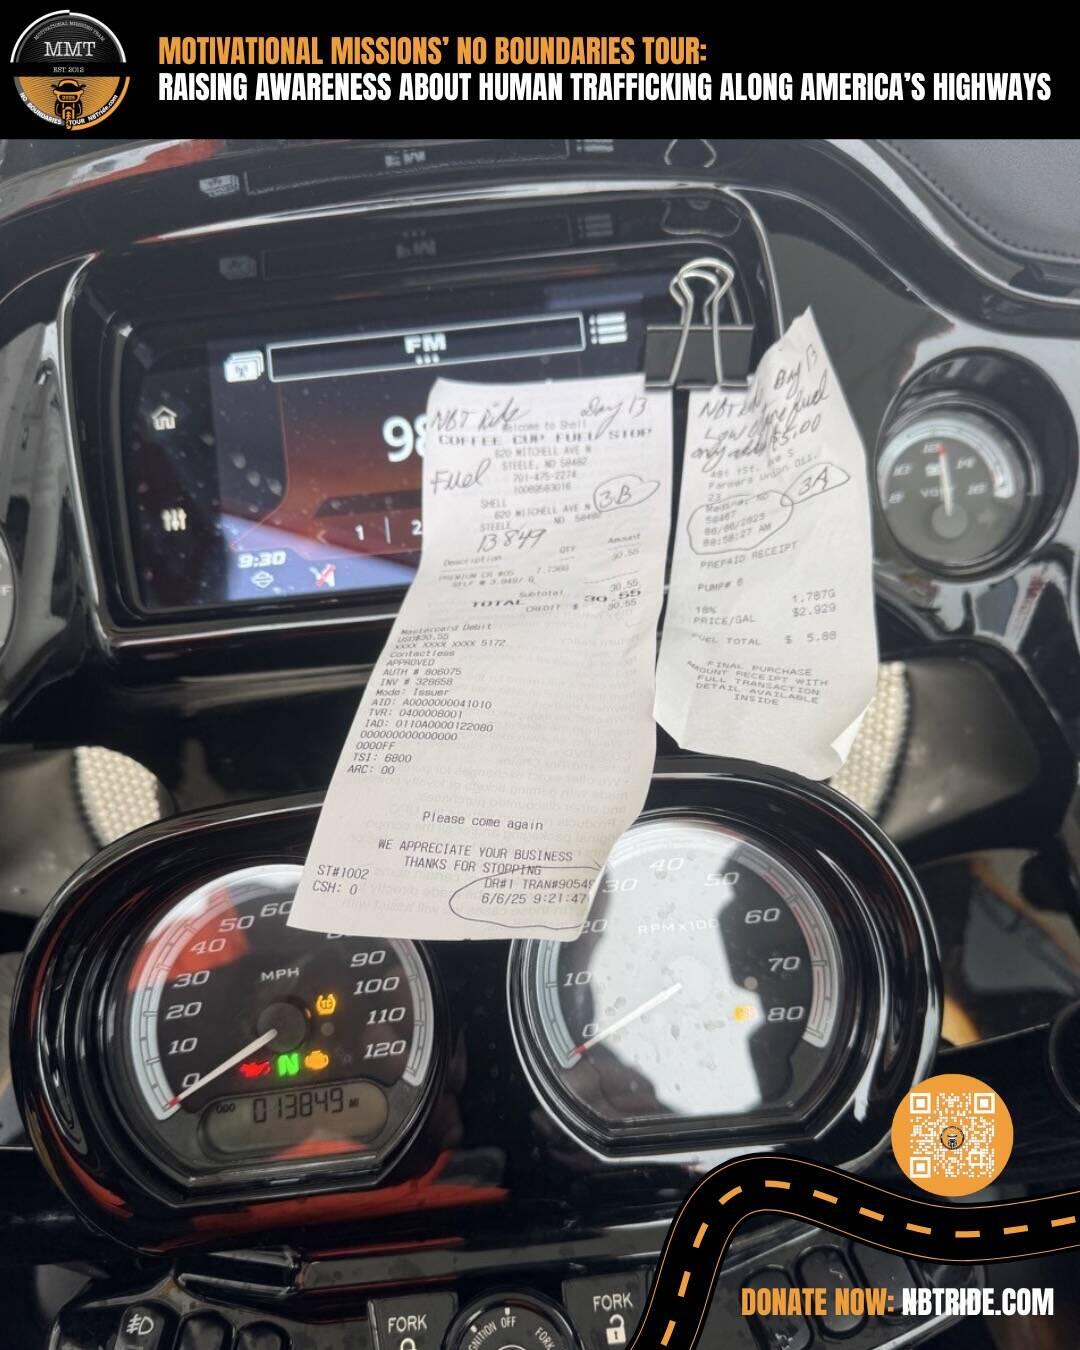 MOTIVATIONAL MISSIONS TEAM
MMT
EST. 2012
2025
NO BOUNDARIES TOUR NBTride.com
MOTIVATIONAL MISSIONS' NO BOUNDARIES TOUR:
RAISING AWARENESS ABOUT HUMAN TRAFFICKING ALONG AMERICA'S HIGHWAYS
FM
98
1 | 2
9:30
NBT Ride Day 13
Welcome to Shell
COFFEE CUP FUEL STOP
620 MITCHELL AVE N
STEELE, ND 58482
701-475-2274
Fuel
SHELL
620 MITCHELL AVE N
STEELE ND
3B
13849
Description Qty Amount
30.55
PREMIUM CR #05 7.736G
SELF @ 3.949/ G
Subtotal 30.55
TOTAL 30.55
CREDIT $ 30.55
Mastercard Debit
USD$30.55
XXXX XXXX XXXX 5172
Contactless
APPROVED
AUTH # 806075
INV # 328658
Mode: Issuer
AID: A0000000041010
TVR: 0400008001
IAD: 0110A0000122080
000000000000000
0000FF
TSI: 6800
ARC: 00
Please come again
WE APPRECIATE YOUR BUSINESS
THANKS FOR STOPPING
ST#1002
CSH: 0
DR#1 TRAN#90549
6/6/25 9:21:47
Day 13
Low Octane fuel
only $5.00
Farmers Union Oil
23
Medina, ND
58467
06/06/2025
08:50:27 AM
3A
PREPAID RECEIPT
PUMP# 6
1.787G
PRICE/GAL $2.929
FUEL TOTAL $ 5.88
FINAL PURCHASE
AMOUNT RECEIPT WITH
FULL TRANSACTION
DETAIL AVAILABLE
INSIDE
8 10 12 14 16
VOLT
0 10 20 30 40 50 60 90 100 110 120
MPH
N
ODO 013849 MI
0 10 20 30 40 50 60 70 80
RPMX100
FORK
IGNITION OFF FORK
FORK
DONATE NOW: NBTRIDE.COM